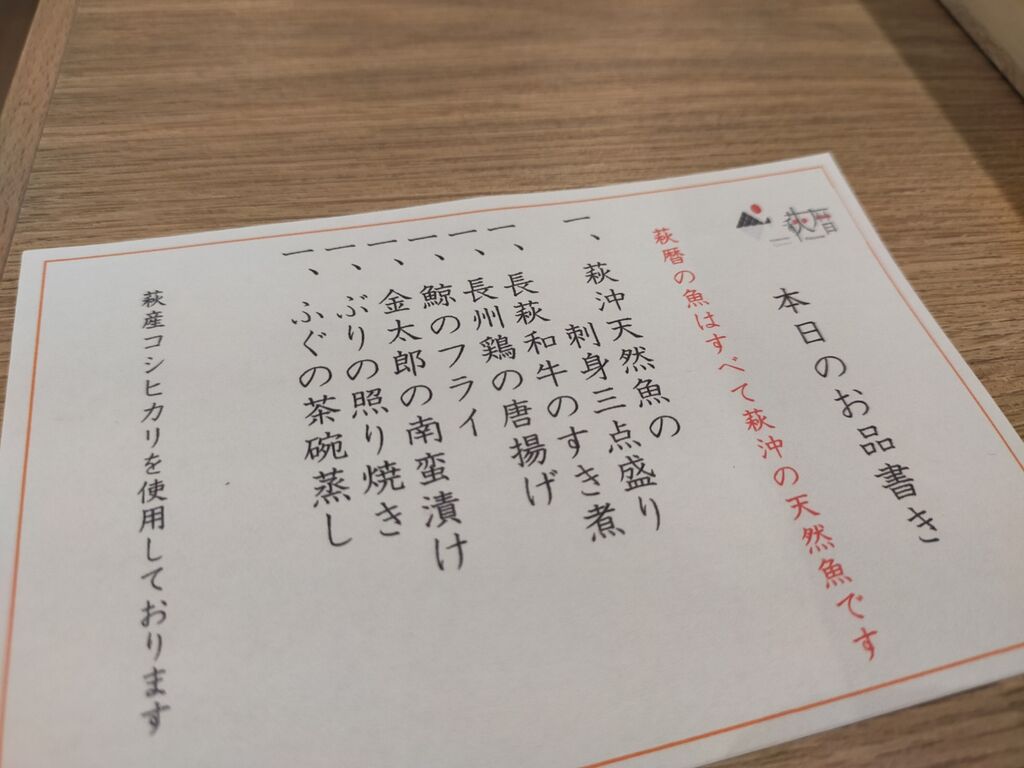 萩暦
本日のお品書き
萩暦の魚はすべて萩沖の天然魚です
一、萩沖天然魚の
刺身三点盛り
一、長萩和牛のすき煮
一、長州鶏の唐揚げ
一、鯨のフライ
一、金太郎の南蛮漬け
一、ぶりの照り焼き
一、ふぐの茶碗蒸し
萩産コシヒカリを使用しております